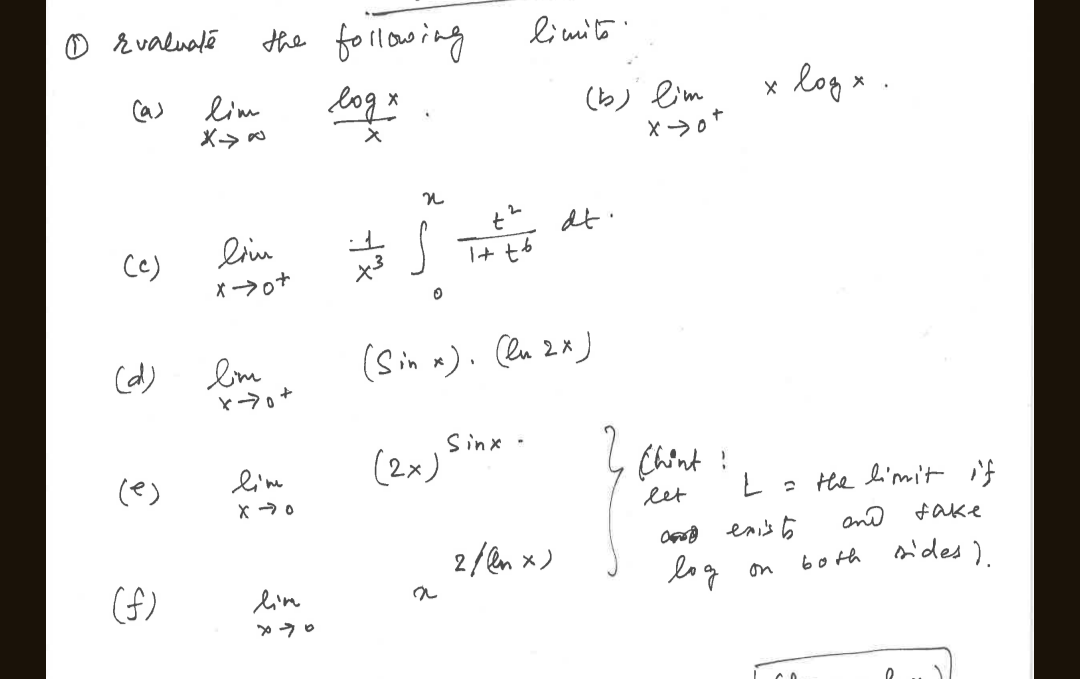 ① Evaluate the following limits.
(a) lim x→∞ log x / x .
(b) lim x→0⁺ x log x .
(c) lim x→0⁺ 1/x³ ∫₀ˣ t²/(1+t⁶) dt .
(d) lim x→0⁺ (Sin x) . (ln 2x)
(e) lim x→0 (2x)^Sin x .
(f) lim x→0 x^2/(ln x)
} (hint :
let L = the limit if
exists and take
log on both sides).